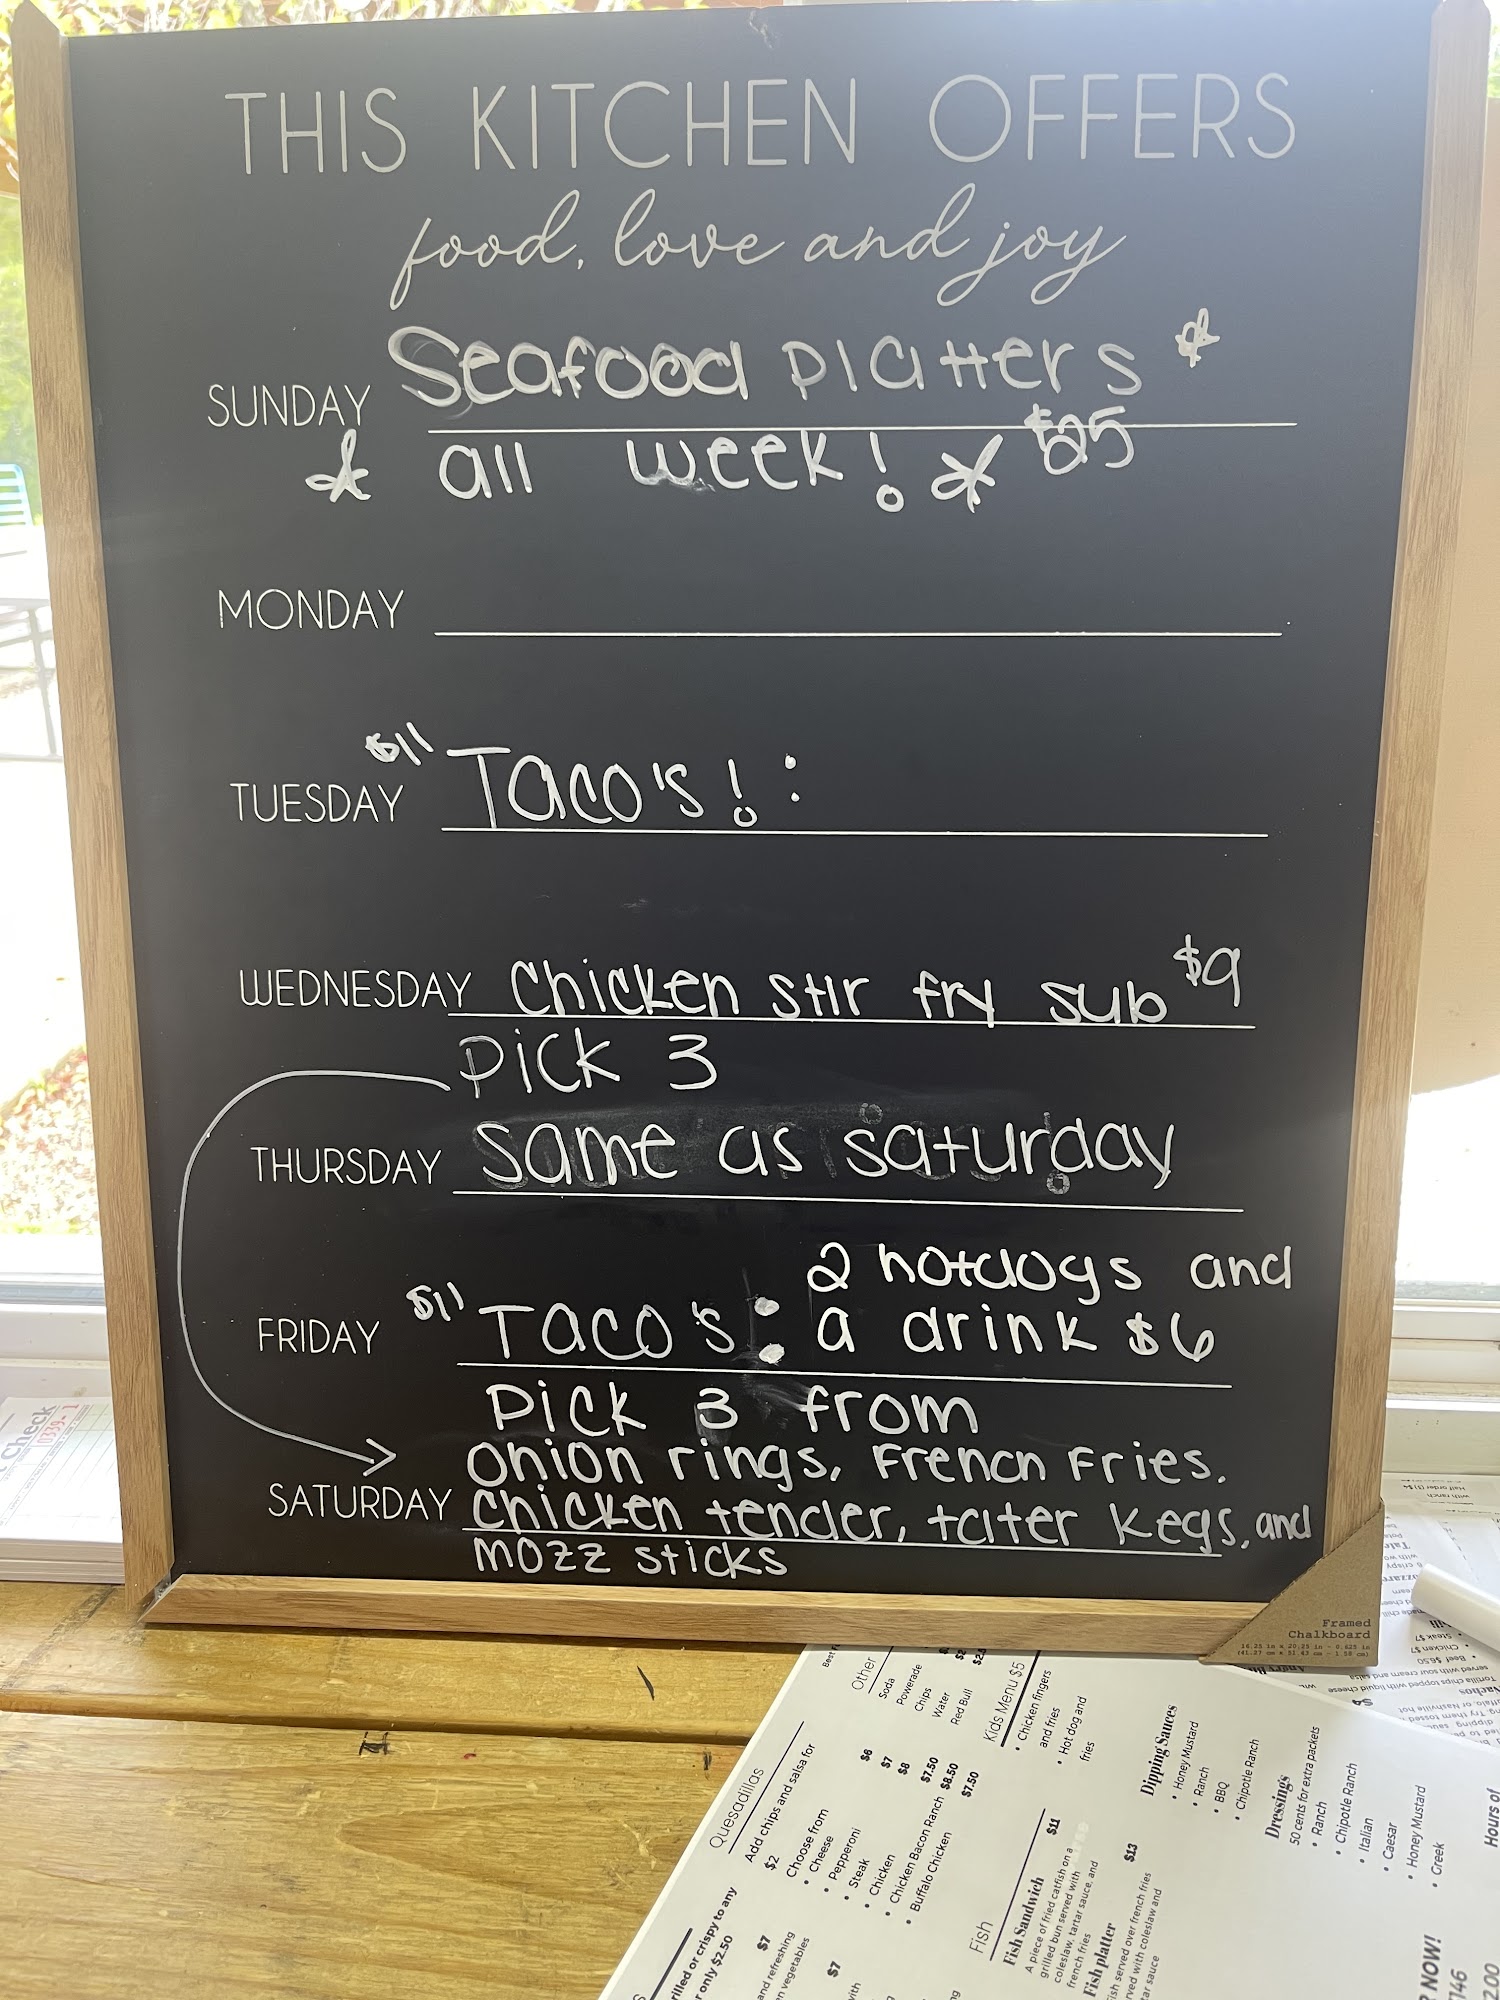 THIS KITCHEN OFFERS
food, love and joy
Seafood platters *
SUNDAY
* all week! * $25
MONDAY
$11
TUESDAY Taco's! :
WEDNESDAY Chicken stir fry sub $9
Pick 3
THURSDAY Same as saturday
2 hotdogs and
FRIDAY $11 Taco's: a drink $6
Pick 3 from
Onion rings, French Fries,
SATURDAY Chicken tender, tater kegs, and
mozz sticks
Framed
Chalkboard
16.25 in x 20.25 in - 0.625 in
(41.27 cm x 51.43 cm - 1.58 cm)
Check
Other
Soda
Powerade
Chips
Water
Red Bull
Kids Menu $5
• Chicken fingers
and fries
• Hot dog and
fries
Quesadillas
Add chips and salsa for
$2
Choose from
• Cheese $6
• Pepperoni $7
• Steak $8
• Chicken $7.50
• Chicken Bacon Ranch $8.50
• Buffalo Chicken $7.50
Fish
Fish Sandwich $11
A piece of fried catfish on a
grilled bun served with
coleslaw, tartar sauce, and
french fries
Fish platter $13
fish served over french fries
served with coleslaw and
tartar sauce
Dipping Sauces
• Honey Mustard
• Ranch
• BBQ
• Chipotle Ranch
Dressings
50 cents for extra packets
• Ranch
• Chipotle Ranch
• Italian
• Caesar
• Honey Mustard
• Greek
Hours of
NOW!
grilled or crispy to any
only $2.50
$7
and refreshing
vegetables
$7
with
Nachos
Tortilla chips topped with liquid cheese
served with sour cream and salsa
• Beef $6.50
• Chicken $7
• Steak $7